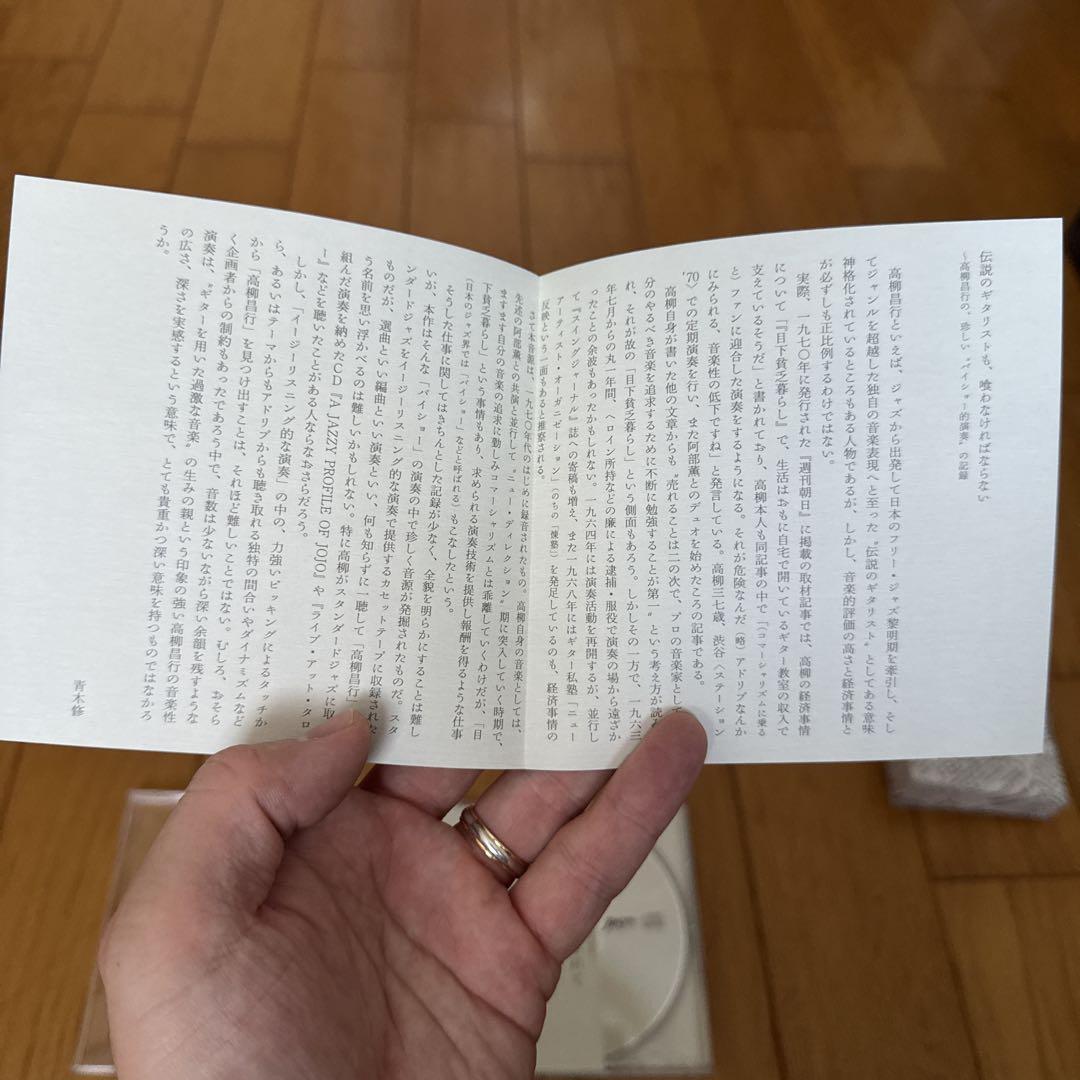 伝説のギタリストも、喰わなければならない
～高柳昌行の、珍しい〝バイショー的演奏〟の記録
高柳昌行といえば、ジャズから出発して日本のフリー・ジャズ黎明期を牽引し、そし
てジャンルを超越した独自の音楽表現へと至った〝伝説のギタリスト〟としてある意味
神格化されているところもある人物であるが、しかし、音楽的評価の高さと経済事情と
が必ずしも正比例するわけではない。
実際、一九七〇年に発行された『週刊朝日』に掲載の取材記事では、高柳の経済事情
について「『目下貧乏暮らし』で、生活はおもに自宅で開いているギター教室の収入で
支えているそうだ」と書かれており、高柳本人も同記事の中で「（コマーシャリズムに乗る
と）ファンに迎合した演奏をするようになる。それが危険なんだ（略）アドリブなんか
にみられる、音楽性の低下ですね」と発言している。高柳三七歳、渋谷〈ステーション
'70〉での定期演奏を行い、また阿部薫とのデュオを始めたころの記事である。
高柳自身が書いた他の文章からも〝売れることは二の次で、プロの音楽家として
分のやるべき音楽を追求するために不断に勉強することが第一〟という考え方が読
れ、それが故の「目下貧乏暮らし」という側面もあろう。しかしその一方で、一九六三
年七月からの丸一年間、ヘロイン所持などの廉による逮捕・服役で演奏の場から遠ざか
ったことの余波もあったかもしれない。一九六四年には演奏活動を再開するが、並行し
て『スイングジャーナル』誌への寄稿も増え、また一九六八年にはギター私塾「ニュー
アーティスト・オーガニゼーション」（のちの「煉塾」）を発足しているのも、経済事情の
反映という一面もあると推察される。
さて本音源は、一九七〇年代のはじめに録音されたもの。高柳自身の音楽としては、
先述の阿部薫との共演と並行して〝ニュー・ディレクション〟期に突入していく時期で、
ますます自分の音楽の追求に勤しみコマーシャリズムとは乖離していくわけだが、「目
下貧乏暮らし」という事情もあり、求められる演奏技術を提供し報酬を得るような仕事
（日本のジャズ界では「バイショー」などと呼ばれる）もこなしたという。
そうした仕事に関してはきちんとした記録が少なく、全貌を明らかにすることは難し
いが、本作はそんな「バイショー」の演奏の中で珍しく音源が発掘されたものだ。スタ
ンダードジャズをイージーリスニング的な演奏で提供するカセットテープに収録された
ものだが、選曲といい編曲といい演奏といい、何も知らずに一聴して「高柳昌行」
う名前を思い浮かべるのは難しいかもしれない。特に高柳がスタンダードジャズに取
組んだ演奏を納めたCD『A JAZZY PROFILE OF JOJO』や『ライブ・アット・タロ
ー』などを聴いたことがある人ならなおさらだろう。
しかし、「イージーリスニング的な演奏」の中の、力強いピッキングによるタッチか
ら、あるいはテーマからもアドリブからも聴き取れる独特の間合いやダイナミズムなど
から「高柳昌行」を見つけ出すことは、それほど難しいことではない。むしろ、おそら
く企画者からの制約もあったであろう中で、音数は少ないながら深い余韻を残すような
演奏は、〝ギターを用いた過激な音楽〟の生みの親という印象の強い高柳昌行の音楽性
の広さ、深さを実感するという意味で、とても貴重かつ深い意味を持つものではなかろ
うか。
青木修